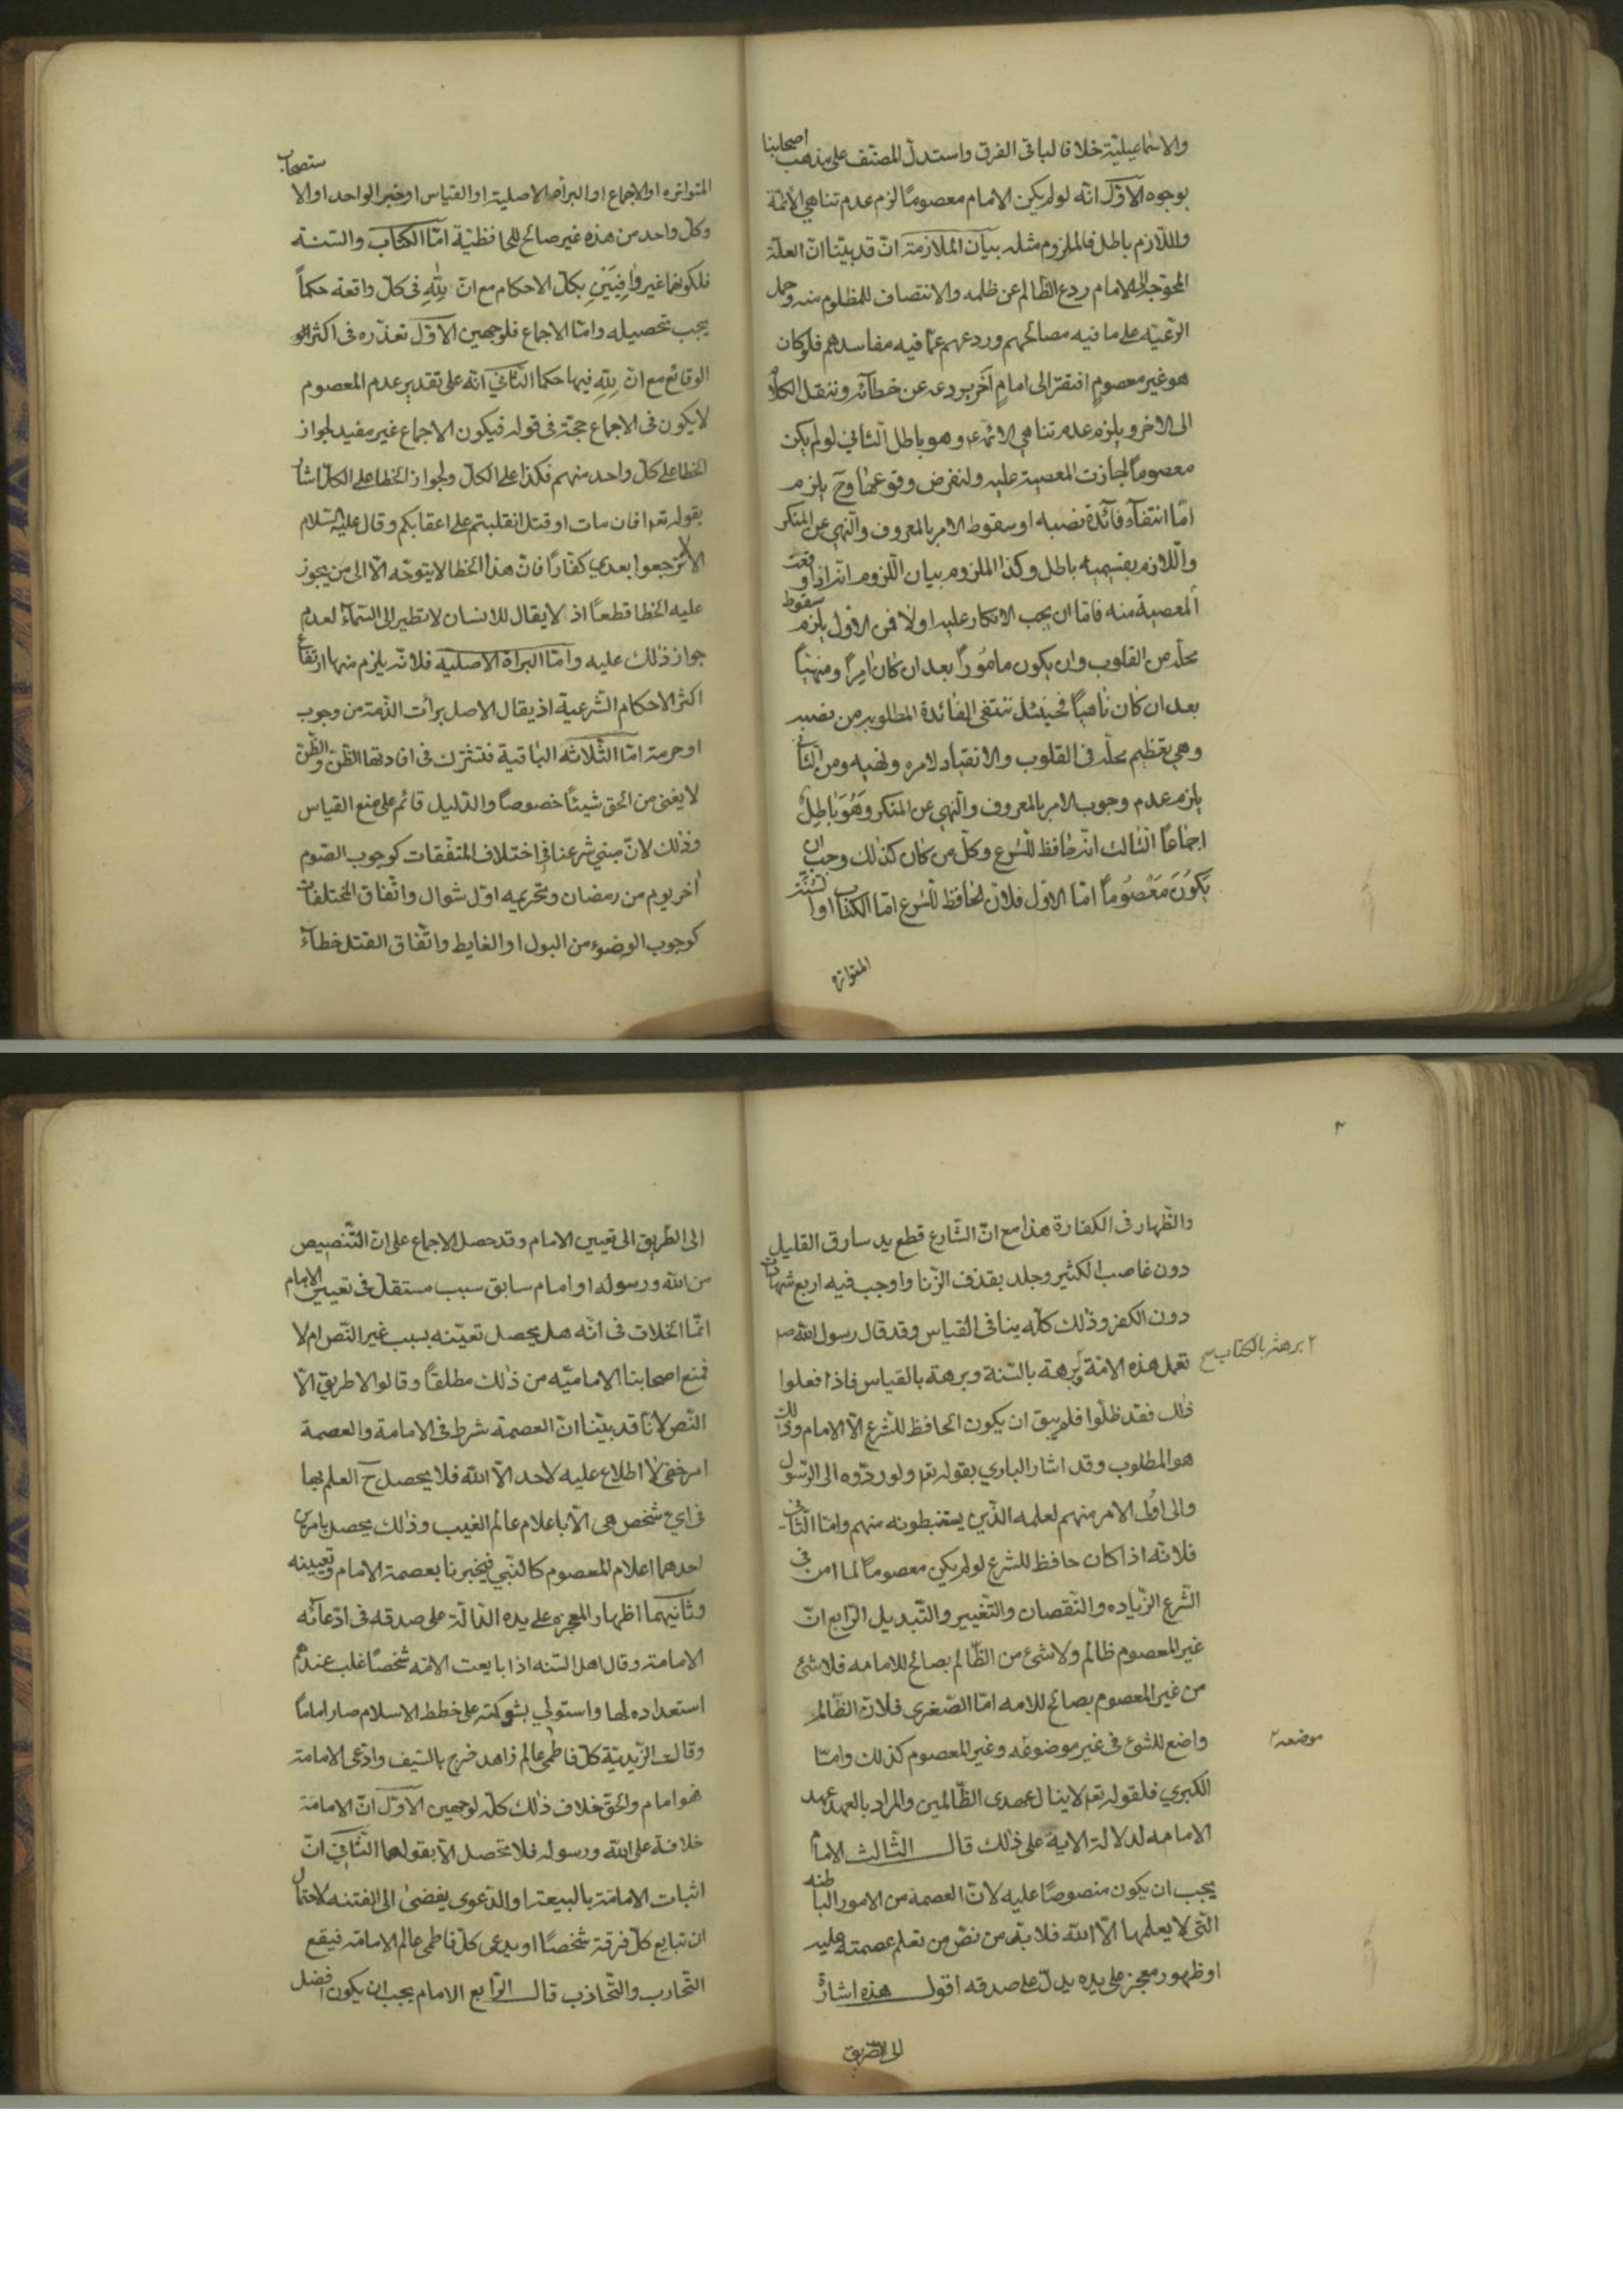 والاسماعيلية خلافا لباقى الفرق واستدل المصنف على مذهب اصحابنا
بوجوه الاوّل انّه لو لم يكن الامام معصومًا لزم عدم تناهي الائمّة
واللّازم باطل فالملزوم مثله بيان الملازمة انّ قد بيّنا انّ العلّة
المحوّجة الى الامام ردع الظالم عن ظلمه والانتصاف للمظلوم منه وحمل
الرّعيّة على ما فيه مصالحهم وردعهم عمّا فيه مفاسدهم فلو كان
هو غير معصومٍ افتقر الى امامٍ آخر يردعه عن خطائه وننقل الكلام
الى الاخر ويلزم عدم تناهي الائمة وهو باطل الثاني لو لم يكن
معصوماً لجازت المعصية عليه ولنفرض وقوعها وح يلزم
امّا انتفاء فائدة نصبه او سقوط الامر بالمعروف والنّهي عن المنكر
واللّازم بقسميه باطل وكذا الملزوم بيان اللزوم انّه اذا وقعت
المعصية منه فامّا ان يجب الانكار عليه اولا فمن الاول يلزم سقوط
محلّه من القلوب وان يكون مامُوراً بعد ان كان امِراً ومنهيّاً
بعد ان كان ناهياً فحينئذ تنتفى الفائدة المطلوبه من نصبه
وهى تعظيم محلّه فى القلوب والانقياد لامره ونهيه ومن الثّانى
يلزم عدم وجوب الامر بالمعروف والنّهي عن المنكر وَهُوَ بَاطِلٌ
اجماعًا الثالث انّه حافظ للشرع وكلّ من كان كذلك وجب ان
يَكُونَ مَعْصُوماً امّا الاول فلانّ الحافظ للشّرع امّا الكتاب او السّنّة
المتواتره
المتواتره او الاجماع او البرأه الاصلية او القياس او خبر الواحد او الاستصحاب
وكلّ واحد من هذه غير صالح للمحافظيّة امّا الكتاب والسّنة
فلكونهما غير وافِيَيْنِ بكلّ الاحكام مع انّ للهِ فى كلّ واقعة حكماً
يجب تحصيله وامّا الاجماع فلوجهين الاوّل تعذّره فى اكثر
الوقائع مع انّ للهِ فيها حكما الثّاني انّه على تقدير عدم المعصوم
لا يكون فى الاجماع حجّة فى قوله فيكون الاجماع غير مفيد لجواز
الخطا على كلّ واحد منهم فكذا على الكلّ ولجواز الخطا على الكلّ اشار
بقوله تعا افان مات او قتل انقلبتم على اعقابكم وقال عليه السّلام
الا لا ترجعوا بعدي كفّارًا فانّ هذا الخطا لا يتوجّه الّا الى من يجوز
عليه الخطا قطعًا اذ لا يقال للانسان لا تطير الى السّماء لعدم
جواز ذلك عليه وامّا البراة الاصلية فلانّه يلزم منها ارتفاع
اكثر الاحكام الشّرعية اذ يقال الاصل برأت الذّمة من وجوب
او حرمة امّا الثّلاثة الباقية فتشترك فى افادتها الظّنّ والظّنّ
لا يغنى من الحق شيئاً خصوصاً والدّليل قائم على منع القياس
وذلك لانّ مبني شرعنا فى اختلاف المتفقات كوجوب الصّوم
آخر يوم من رمضان وتحريمه اوّل شوال واتّفاق المختلفات
كوجوب الوضوء من البول او الغايط واتّفاق القتل خطاءً
والظّهار فى الكفارة هذا مع انّ الشّارع قطع يد سارق القليل
دون غاصب الكثير وجلد بقذف الزّنا واوجب فيه اربع شهادات
دون الكفر وذلك كلّه ينافى القياس وقد قال رسول الله ص
تعمل هذه الامّة برهة بالسّنة وبرهة بالقياس فاذا فعلوا
٢ برهة بالكتاب صح
ذلك فقد ظلّوا فلم يبق ان يكون الحافظ للشّرع الّا الامام وذلك
هو المطلوب وقد اشار الباري بقوله تعا ولو ردّوه الى الرّسول
والى اولى الامر منهم لعلمه الّذين يستنبطونه منهم وامّا الثّانى
فلانّه اذا كان حافظ للشرع لو لم يكن معصوماً لما امن فى
الشّرع الزّياده والنّقصان والتّغيير والتّبديل الرّابع انّ
غير المعصوم ظالم ولا شئ من الظّالم بصالح للامامه فلا شئ
من غير المعصوم بصالح للامه امّا الصّغرى فلانّ الظّالم
واضع للشئ فى غير موضوعه وغير المعصوم كذلك وامّا
موضعه ٢
الكبرى فلقوله تعا لا ينال عهدى الظّالمين والمراد بالعهد عهد
الامامه لدلالة الاية على ذلك قال الثّالث الامام
يجب ان يكون منصوصًا عليه لانّ العصمة من الامور الباطنه
الّتى لا يعلمها الّا الله فلا بدّ من نصّ من تعلم عصمته عليه
او ظهور معجز على يده يدلّ على صدقه اقول هذه اشارة
الى الطّريق
الى الطّريق الى تعيين الامام وقد حصل الاجماع على انّ التّنصيص
من الله ورسوله او امام سابق سبب مستقلّ فى تعيين الامام
انّما الخلاف فى انّه هل يحصل تعيّنه بسبب غير النّص ام لا
فمنع اصحابنا الاماميّه من ذلك مطلقاً وقالوا لا طريق الّا
النّص لانّا قد بيّنا انّ العصمة شرط فى الامامة والعصمة
امر خفىّ لا اطلاع عليه لاحد الّا الله فلا يحصل ح العلم بها
فى ايّ شخص هى الّا باعلام عالم الغيب وذلك يحصل بامرين
احدهما اعلام المعصوم كالنّبي فيخبرنا بعصمة الامام وتعيينه
وثانيهما اظهار المعجزه على يده الدّالّة على صدقه فى ادّعائه
الامامة وقال اهل السّنه اذا بايعت الامّه شخصاً غلب عندهم
استعداده لها واستولي بشوكته على خطط الاسلام صار اماماً
وقالت الزّيديّة كلّ فاطمى عالم زاهد خرج بالسّيف وادّعى الامامة
فهو امام والحقّ خلاف ذلك كلّه لوجهين الاوّل انّ الامامة
خلافة على الله ورسوله فلا تحصل الّا بقولهما الثّاني انّ
اثبات الامامة بالبيعة او الدّعوى يفضى الى الفتنه لاحتمال
ان تبايع كلّ فرقة شخصًا او يدعى كلّ فاطمى عالم الامامة فيقع
التّحارب والتّجاذب قال الرّابع الامام يجب ان يكون افضل